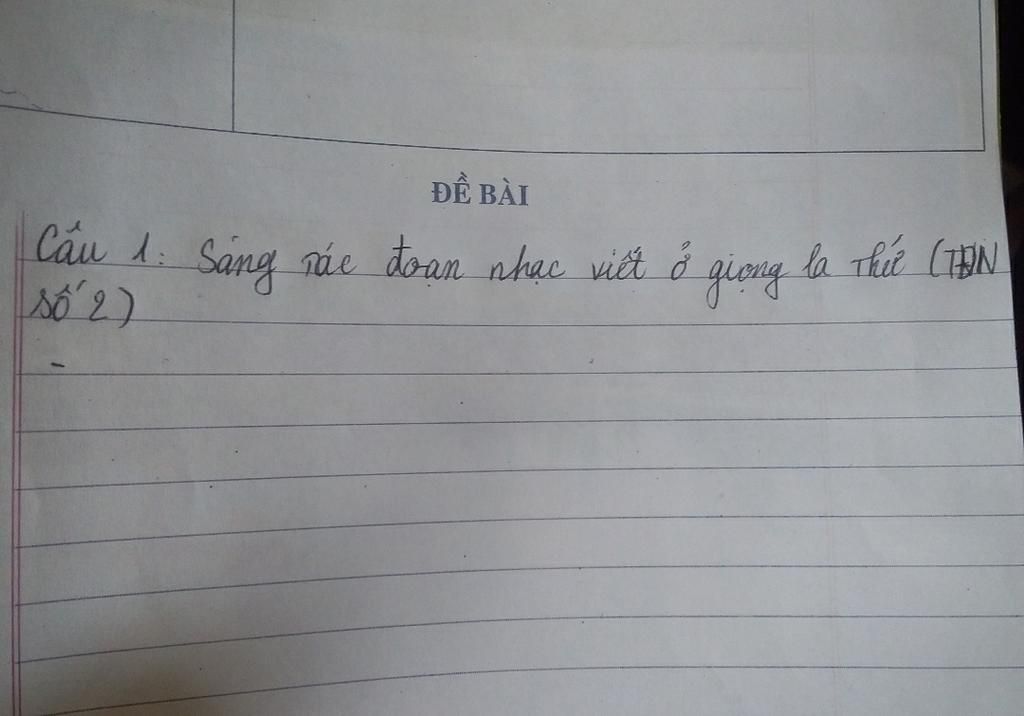 ĐỀ BÀI
Câu 1: Sáng tác đoạn nhạc viết ở giọng la thứ (TĐN
số 2)
-